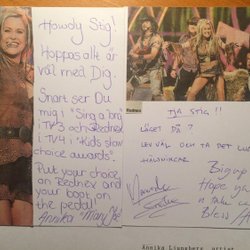 Howdy Stig!
Hoppas allt är
väl med Dig.
Snart ser Du
mig i "Sing a long"
i TV3 och Rednex
i TV4 i "Kids show
choice awards".
Put your choice
on Rednex and
your boot on
the pedal!
Annika
Rednex
TJA STIG!!
LÄGET DÅ?
LEV VÄL OCH TA DET LUGNT
HÄLSNINGAR
Big up
Hope yo
n take c
Bless
Annika Ljungberg